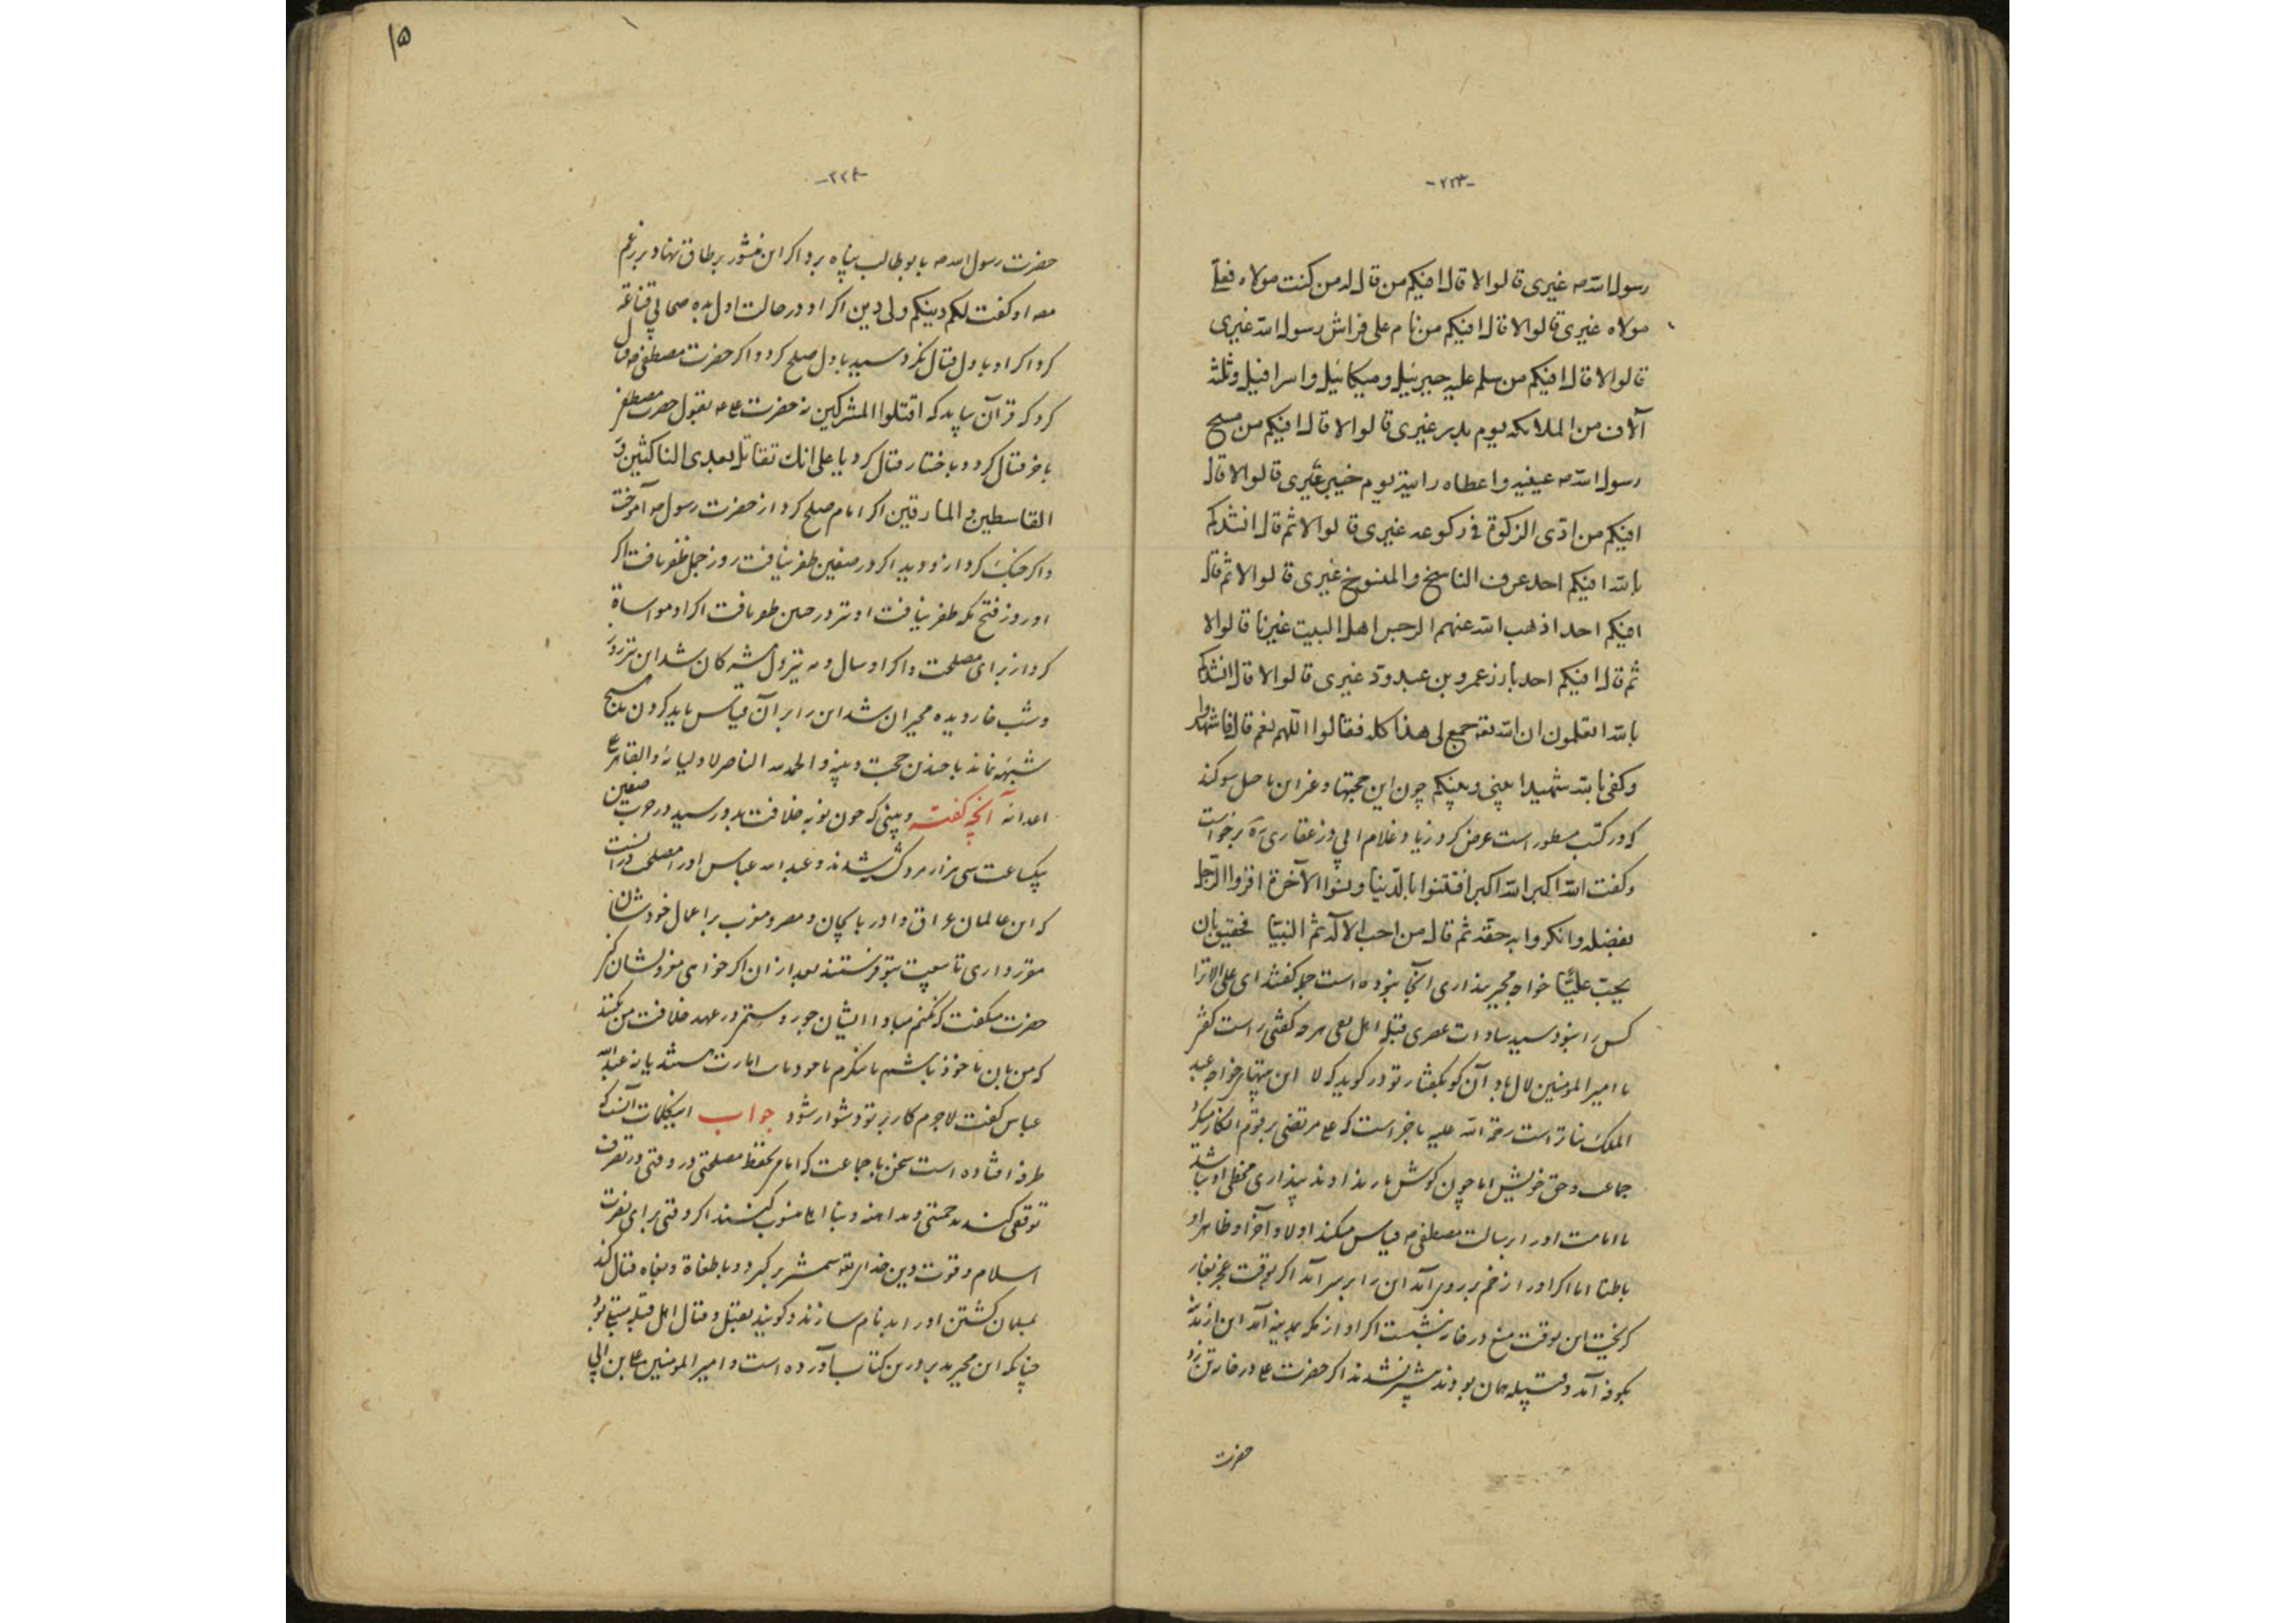 -۲۲۳-
رسول الله صه غیری قالوا لا قال افیکم من قال له من کنت مولاه فعلی
مولاه غیری قالوا لا قال افیکم من نام علی فراش رسول الله غیری
قالوا لا قال افیکم من سلم علیه جبرئیل و میکائیل و اسرافیل و ثلثه
آلاف من الملائکه یوم بدر غیری قالوا لا قال افیکم من مسح
رسول الله صه عینیه و اعطاه رایته یوم خیبر غیری قالوا لا قال
افیکم من ادّی الزکوة فی رکوعه غیری قالوا لا ثم قال انشدکم
بالله افیکم احد عرف الناسخ والمنسوخ غیری قالوا لا ثم قال
افیکم احد اذهب الله عنهم الرجس اهل البیت غیرنا قالوا لا
ثم قال افیکم احد بارز عمرو بن عبدودّ غیری قالوا لا قال انشدکم
بالله اتعلمون ان الله تعه جمع لی هذا کله فقالوا اللّهم نعم قال فاشهدوا
وکفی بالله شهیدا بینی و بینکم چون این حجتها و غر این باصل سوکند
که در کتب مسطور است عرض کرد زیاد غلام ابی ذر غفاری ره برخواست
و کفت الله اکبر الله اکبر افتتنوا بالدّنیا و نسوا الآخرة اقروا الرّجل
بفضله و انکروا به حقه ثم قال من احب الاله ثم النبیّا فحقیق بان
یحبّ علیّا خواجه مجبر پنداری آنجا نبوده است جمله کفتند ای علی الا ترا
کس را نبود سید سادات عصری قبله اهل تعی هر چه کفتی راست کفتی
با امیر المومنین لال باد آن کو بکفتار تو در کوید که لا این خواجه عبد
الملک بنا تراست رحمة الله علیه با خبر است که ع مرتضی بر قوم انکار میکرد
جماعت و حق خویش اما چون کوش باز ندادند پنداری مخطی او باشد
با امامت او را برسالت مصطفی صه قیاس میکند اولا و آخرا و ظاهرا و
باطنا اما اکر او را زخم بر روی آمد این را بر سر آمد اکر او بوقت عجز بغار
کریخت این بوقت منع در خانه بنشست اکر او از مکه بمدینه آمد این از مدینه
بکوفه آمد و قبیله همان بودند بیشتر نشدند اکر حضرت ع در خانه تن زد
حضرت
۱۵
-۲۲۴-
حضرت رسول الله صه بابوطالب پناه برد اکر این منشور بر طاق نهاد بر زعم
معه او کفت لکم دینکم ولی دین اکر او در حالت اول بده صحابی قناعه
کرد اکر او باول قتال نکرد سید باول صلح کرد و اکر حضرت مصطفی صه قتال
کرد که قرآن بیامد که اقتلوا المشرکین نه حضرت ع عه بقول حضرت مصطفی
باخر قتال کرد و باختار قتال کرد یا علی انک تقاتل بعدی الناکثین و
القاسطین و المارقین اکر امام صلح کرد از حضرت رسول صه آموخت
و اکر جنک کرد از و دید اکر در صفین ظفر نیافت روز جمل ظفر یافت اکر
او روز فتح مکه ظفر نیافت او نیز در حنین ظفر یافت اکر او مواساة
کرد از برای مصلحت و اکر او سال و مه بنزول مشرکان شد این نیز روز
و شب خانه دیده مجبران شد این را بر آن قیاس باید کردن تا هیچ
شبهه نماند با چندین حجت و بینه و الحمد لله الناصر لاولیائه و القاهر
اعدائه آنچه کفته و بینی که چون نوبه خلافت بدو رسید در حرب صفین
بیکساعت سی هزار مرد کشته شدند و عبدالله عباس او را مصلحت در آن است
که این عالمان عراق و آذربایجان و مصر و مغرب بر اعمال خودشان
مقرر داری تا بیعت بتو فرستند بعد از ان اکر خواهی معزولشان کنی
حضرت میکفت که نکنم مبادا ایشان جور و ستم در عهد خلافت من کنند
که من بان ماخوذ باشم عبدالله
عباس کفت لاجرم کار بر تو دشوار شود جواب اینکلمات آنست که
طرفه افتاده است سخن با جماعت که امام بحفظ مصلحتی در وقتی در تصرف
توقفی کند بد حمیتی و مداهنه و بنا اهل منسوب کنند اکر وقتی برای نصرت
اسلام و قوت دین خدای تعه شمشیر بر کیرد و با طغاة و بغاه قتال کند
بمسلمان کشتن او را بدنام سازند و کویند بقتل و قتال اهل قبله مبتلا بود
چنانکه این مجبر مدبر درین کتاب آورده است و امیر المومنین علی بن ابی